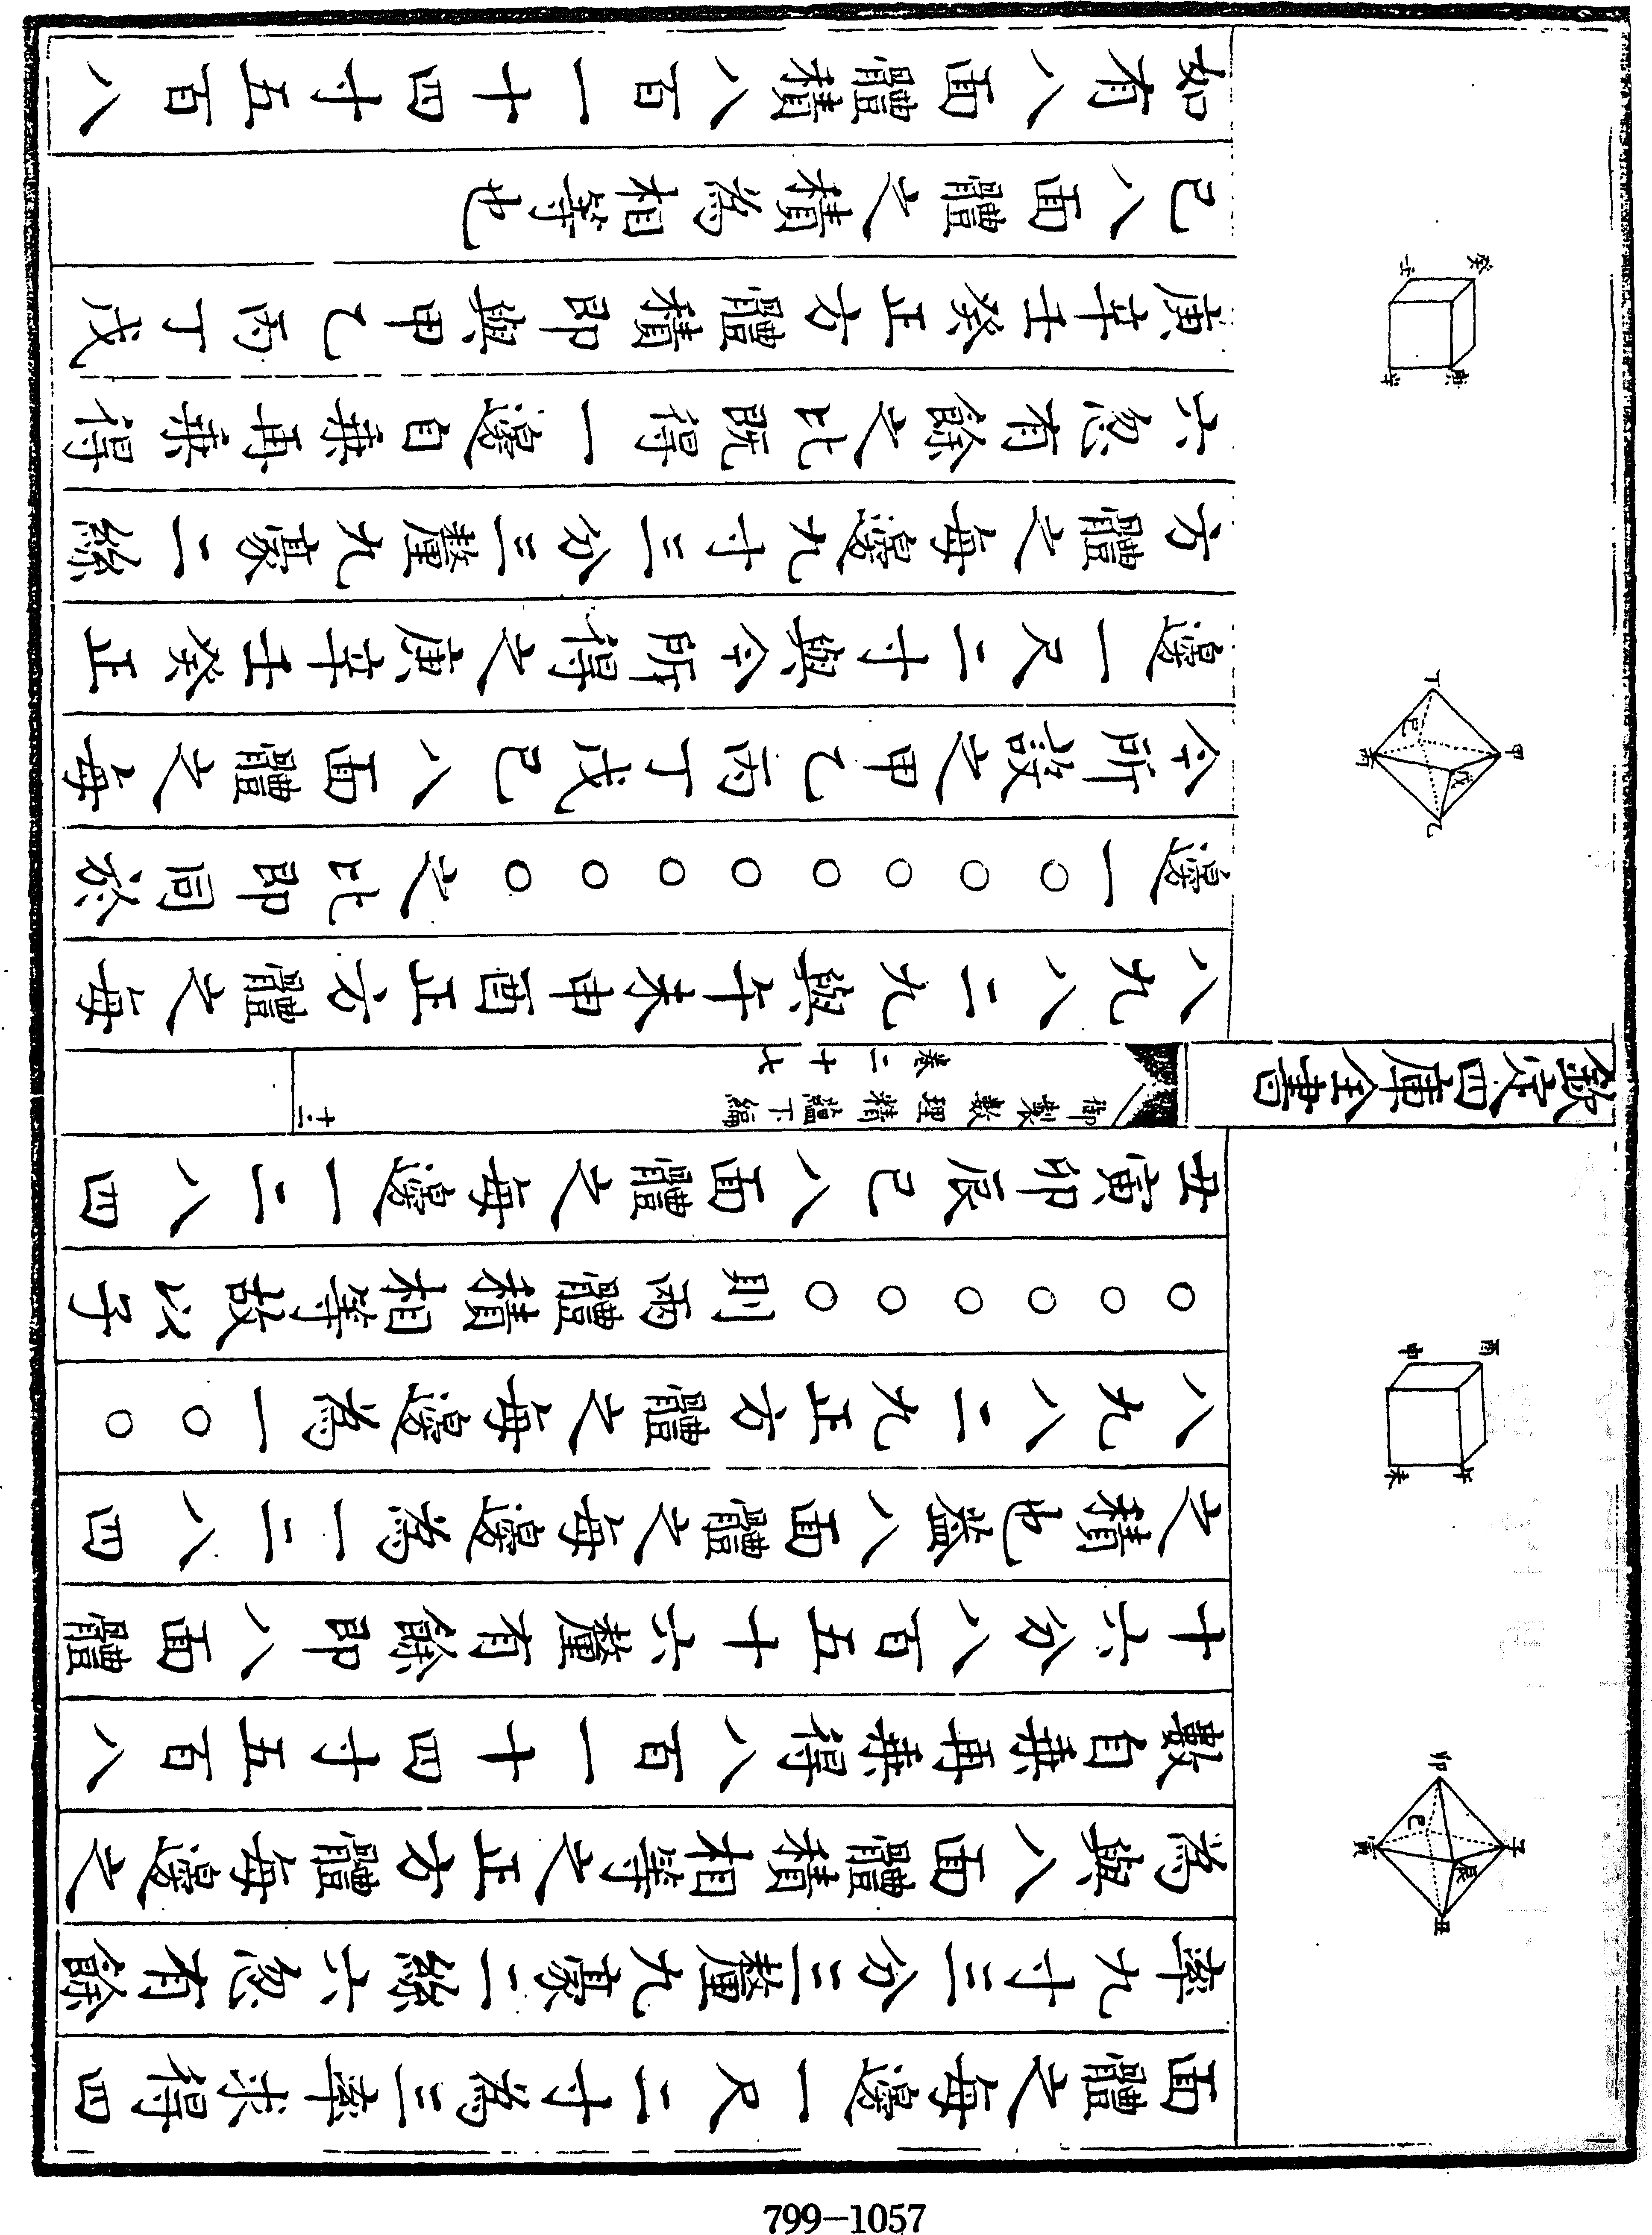 面體之每邊一尺二寸為三率求得四
率九寸三分三釐九豪二絲六忽有餘
為與八面體積相等之正方體每邊之
數自乘再乘得八百一十四寸五百八
十六分八百五十六釐有餘即八面體
之積也蓋八面體之每邊為一二八四
八九八二九正方體之每邊為一〇〇
〇〇〇〇〇〇則兩體積相等故以子
丑寅卯辰巳八面體之每邊一二八四
卯
子
巳
辰
寅
丑
酉
申
午
未
欽定四庫全書
御製數理精藴下編
卷二十七
八九八二九與午未申酉正方體之每
邊一〇〇〇〇〇〇〇〇之比即同於
今所設之甲乙丙丁戊己八面體之每
邊一尺二寸與今所得之庚辛壬癸正
方體之每邊九寸三分三釐九豪二絲
六忽有餘之比既得一邊自乘再乘得
庚辛壬癸正方體積即與甲乙丙丁戊
己八面體之積為相等也
如有八面體積八百一十四寸五百八
丁
甲
己
戊
丙
乙
癸
壬
庚
辛
799-1057